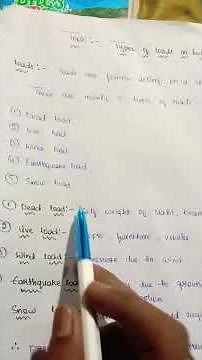 Topic :- Types of loads in
Loads :- Loads are forces acting on a
There are mainly 5 types of loads
① Dead load
② Live load
③ Wind load
④ Earthquake load
⑤ Snow load
① Dead load:- Self weight of slabs, beams
② Live load:- people, furniture, vehicles
③ Wind load:- pressure due to wind
Earthquake load due to ground
Snow